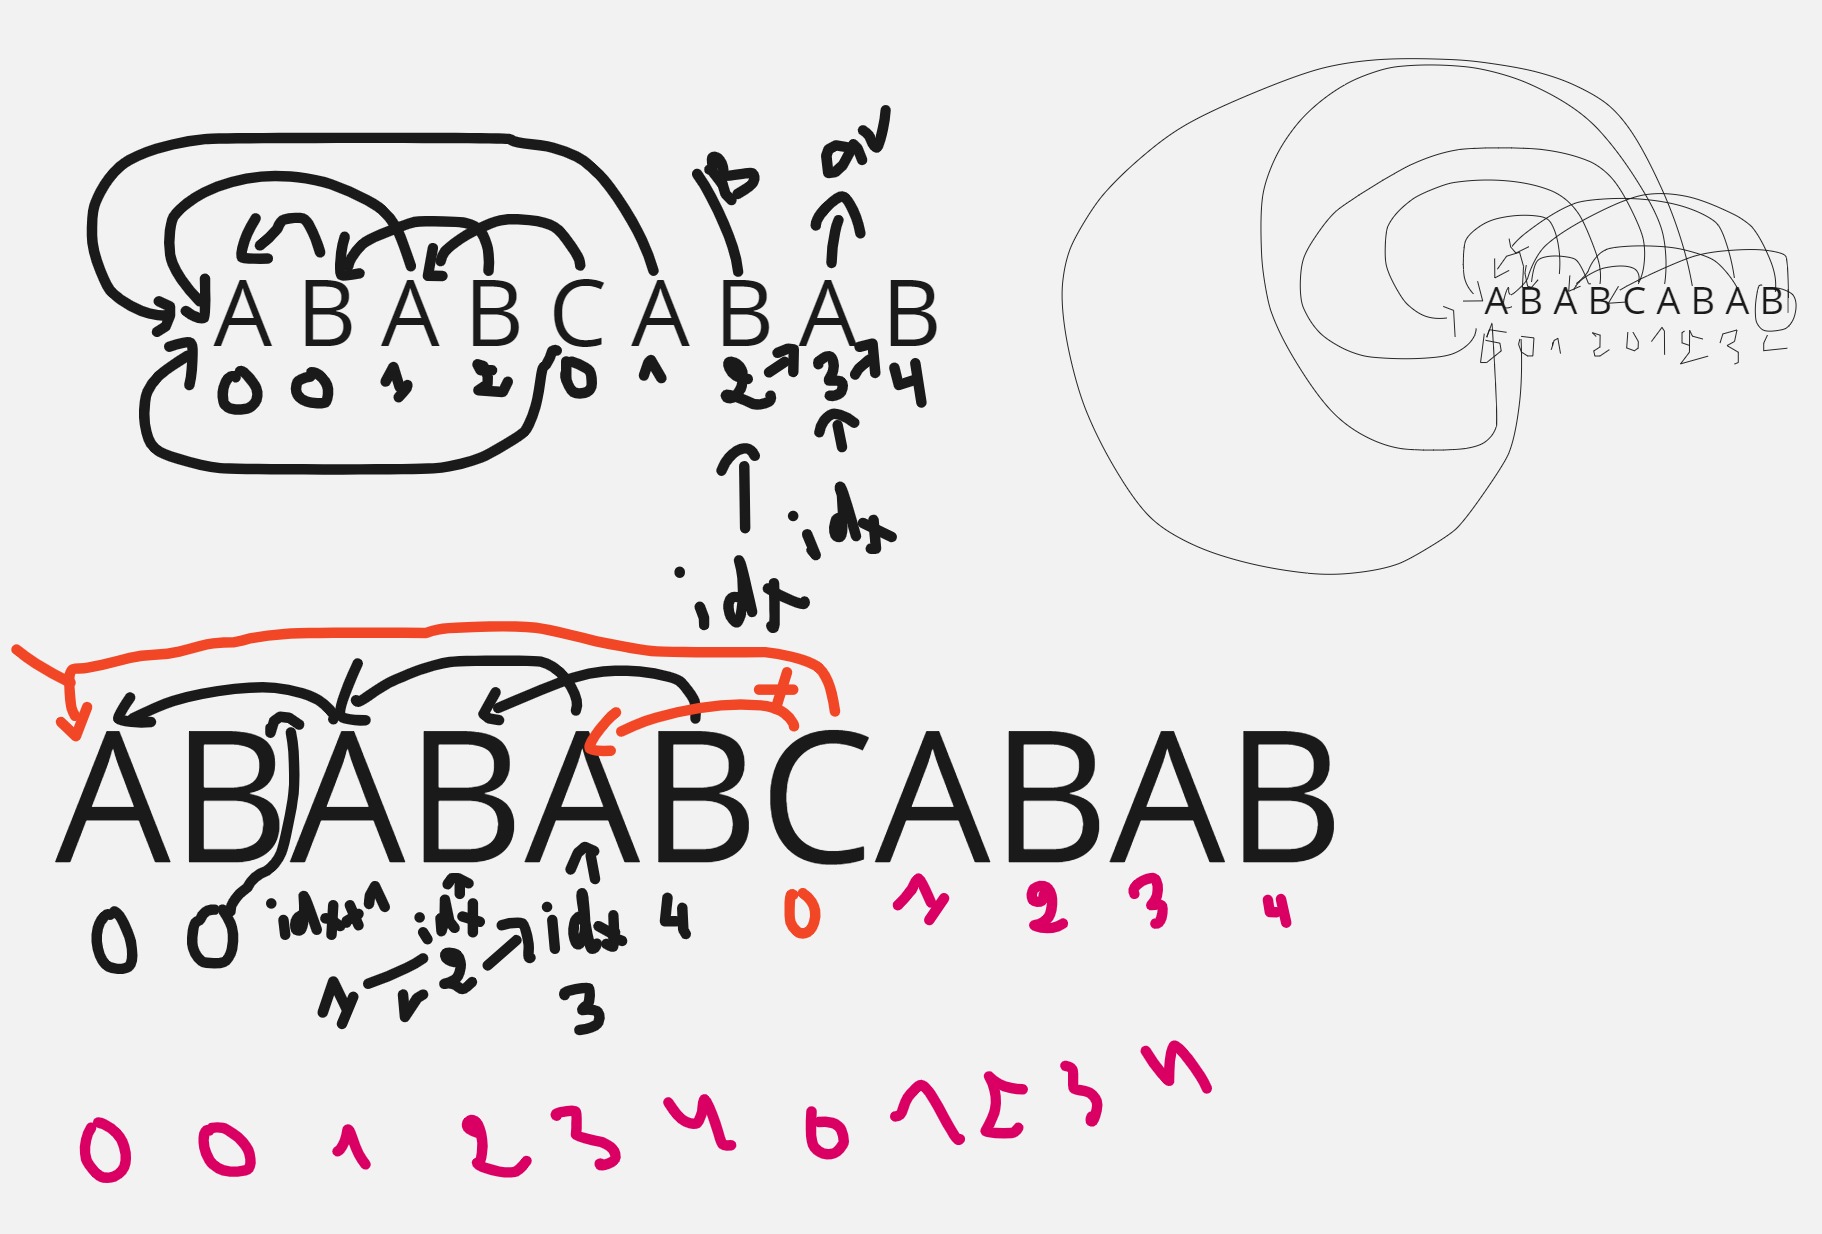 B
ABABCABAB
0 0 1 2 0 1 2 3 4
idx
idx
ABABCABAB
0 0 1 2 0 1 2 3
ABABABCABAB
0 0 idx+1 idx idx 4 0 1 2 3 4
1 2 3
0 0 1 2 3 4 0 1 2 3 4